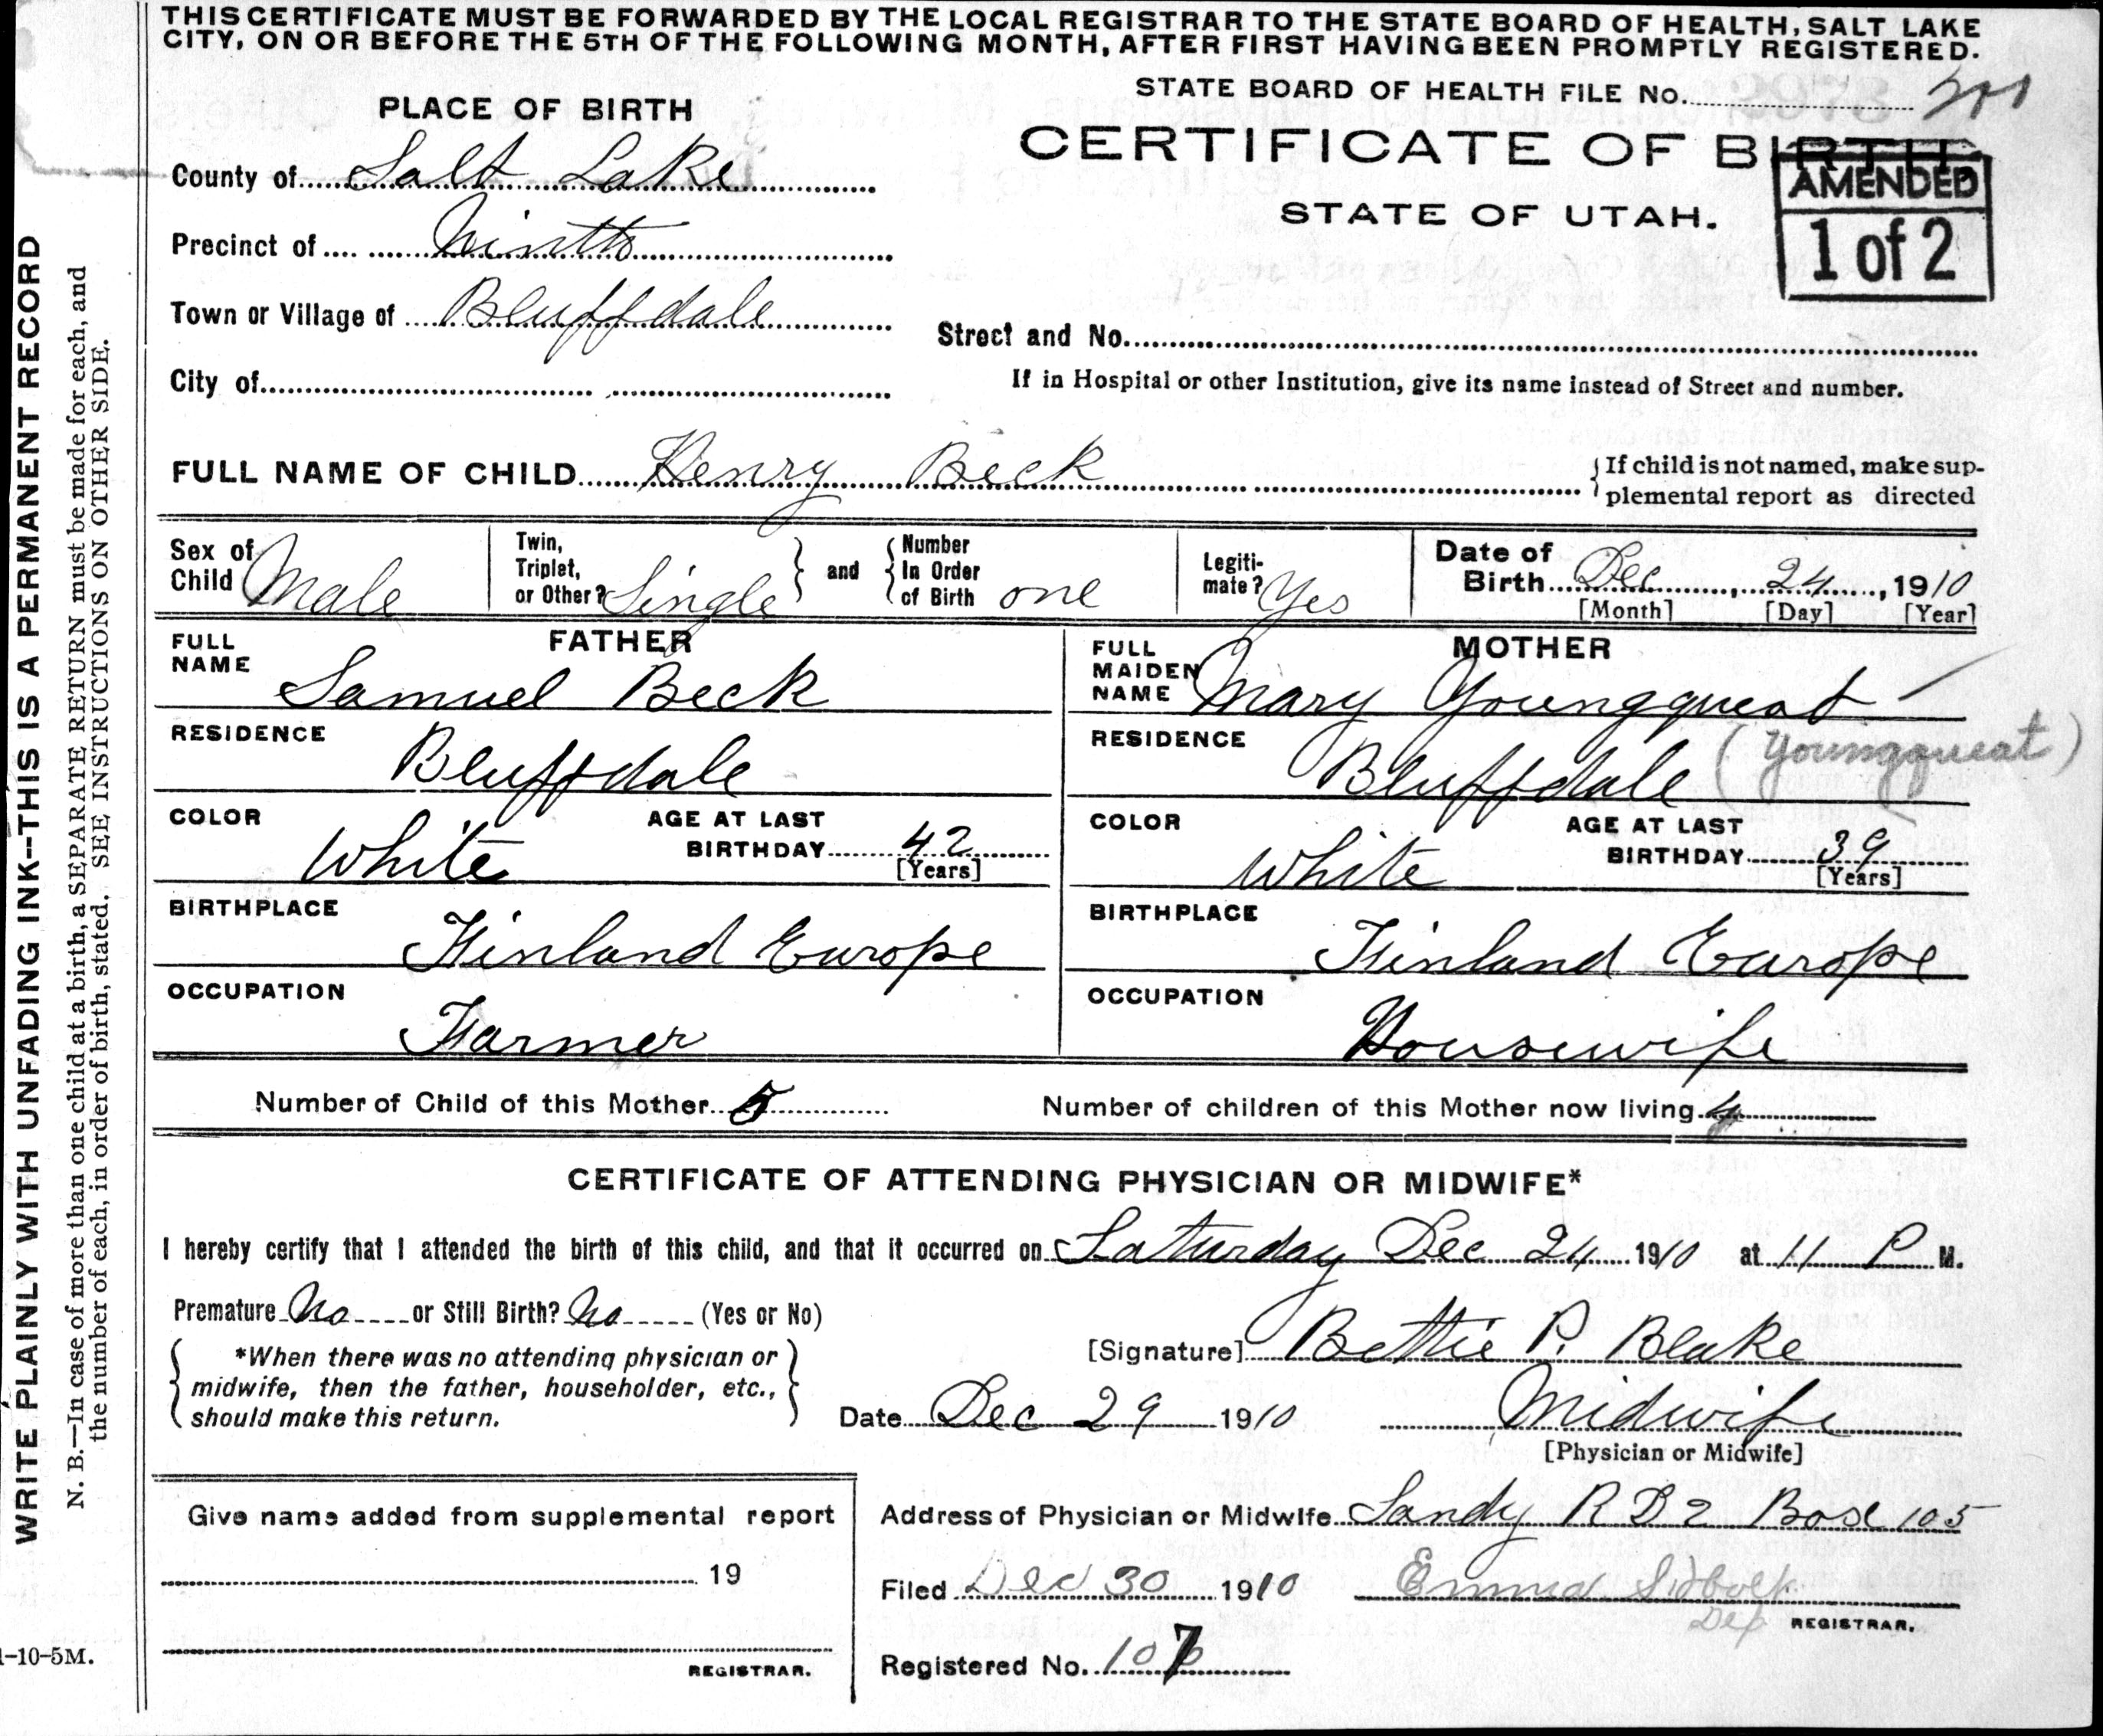 THIS CERTIFICATE MUST BE FORWARDED BY THE LOCAL REGISTRAR TO THE STATE BOARD OF HEALTH, SALT LAKE
CITY, ON OR BEFORE THE 5TH OF THE FOLLOWING MONTH, AFTER FIRST HAVING BEEN PROMPTLY REGISTERED.
STATE BOARD OF HEALTH FILE No.
PLACE OF BIRTH
CERTIFICATE OF BIRTH.
STATE OF UTAH.
AMENDED
1 of 2
County of Salt Lake
Precinct of
Town or Village of Bluffdale
Street and No.
City of
If in Hospital or other Institution, give its name instead of Street and number.
FULL NAME OF CHILD Henry Beck
If child is not named, make sup-
plemental report as directed
Sex of Child Male
Twin, Triplet, or Other? Single and Number In Order of Birth one
Legiti-mate? Yes
Date of Birth Dec 24, 1910
[Month] [Day] [Year]
FATHER
FULL NAME Samuel Beck
RESIDENCE Bluffdale
COLOR White AGE AT LAST BIRTHDAY 42
[Years]
BIRTHPLACE Finland Europe
OCCUPATION Farmer
MOTHER
FULL MAIDEN NAME Mary Youngqueat
RESIDENCE Bluffdale (Youngqueat)
COLOR White AGE AT LAST BIRTHDAY 39
[Years]
BIRTHPLACE Finland Europe
OCCUPATION Housewife
Number of Child of this Mother 5 Number of children of this Mother now living 4
CERTIFICATE OF ATTENDING PHYSICIAN OR MIDWIFE*
I hereby certify that I attended the birth of this child, and that it occurred on Saturday Dec 24 1910 at 11 P M.
Premature No or Still Birth? No (Yes or No)
*When there was no attending physician or
midwife, then the father, householder, etc.,
should make this return.
[Signature] Bettie P. Blake
Date Dec 29 1910 Midwife
[Physician or Midwife]
Give name added from supplemental report
19
REGISTRAR.
Address of Physician or Midwife Sandy R D 2 Box 105
Filed Dec 30 1910 Emma
Dep REGISTRAR.
Registered No. 107
WRITE PLAINLY WITH UNFADING INK--THIS IS A PERMANENT RECORD
N. B.—In case of more than one child at a birth, a SEPARATE RETURN must be made for each, and
the number of each, in order of birth, stated. SEE INSTRUCTIONS ON OTHER SIDE.
-10-5M.